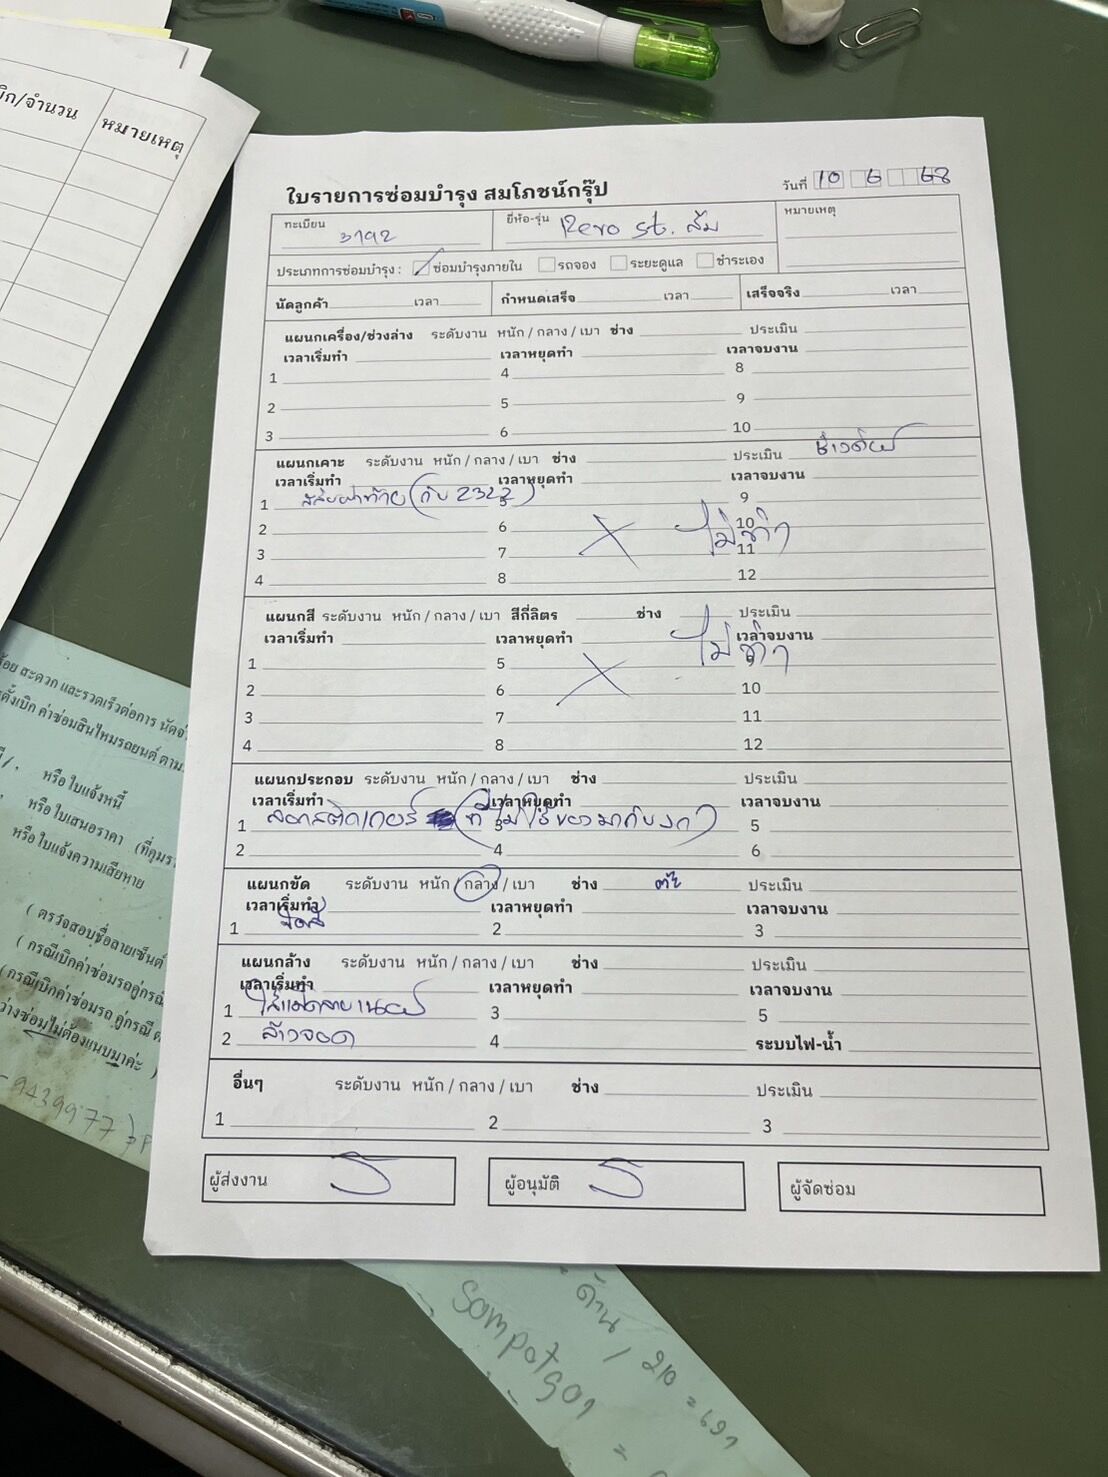 ิก/จำนวน
หมายเหตุ
ใบรายการซ่อมบำรุง สมโภชน์กรุ๊ป
วันที่ 10 6 68
ทะเบียน 3792
ยี่ห้อ-รุ่น Revo st. ส้ม
หมายเหตุ
ประเภทการซ่อมบำรุง : ซ่อมบำรุงภายใน รถจอง ระยะดูแล ชำระเอง
นัดลูกค้า เวลา กำหนดเสร็จ เวลา เสร็จจริง เวลา
แผนกเครื่อง/ช่วงล่าง ระดับงาน หนัก / กลาง / เบา ช่าง ประเมิน
เวลาเริ่มทำ เวลาหยุดทำ เวลาจบงาน
1 4 8
2 5 9
3 6 10
แผนกเคาะ ระดับงาน หนัก / กลาง / เบา ช่าง ประเมิน
เวลาเริ่มทำ เวลาหยุดทำ เวลาจบงาน
1 (กับ 2322) 5 9
2 6 10
3 7 ไม่ทำ 11
4 8 12
แผนกสี ระดับงาน หนัก / กลาง / เบา สีกี่ลิตร ช่าง ประเมิน
เวลาเริ่มทำ เวลาหยุดทำ เวลาจบงาน
1 5 ไม่ทำ 9
2 6 10
3 7 11
4 8 12
แผนกประกอบ ระดับงาน หนัก / กลาง / เบา ช่าง ประเมิน
เวลาเริ่มทำ เวลาหยุดทำ เวลาจบงาน
1 ลอกสติกเกอร์ (ที่ไม่ใช่ของมากับรถ) 3 5
2 4 6
แผนกขัด ระดับงาน หนัก / กลาง / เบา ช่าง ประเมิน
เวลาเริ่มทำ เวลาหยุดทำ เวลาจบงาน
1 ขัดสี 2 3
แผนกล้าง ระดับงาน หนัก / กลาง / เบา ช่าง ประเมิน
เวลาเริ่มทำ เวลาหยุดทำ เวลาจบงาน
1 3 5
2 ล้างจอด 4 ระบบไฟ-น้ำ
อื่นๆ ระดับงาน หนัก / กลาง / เบา ช่าง ประเมิน
1 2 3
ผู้ส่งงาน ผู้อนุมัติ ผู้จัดซ่อม
สะดวก และรวดเร็วต่อการ นัดจ่
ตั้งเบิก ค่าซ่อมสินไหมรถยนต์ ตาม
หรือ ใบแจ้งหนี้
หรือ ใบเสนอราคา (ที่คุมรา
หรือ ใบแจ้งความเสียหาย
( ตรวจสอบชื่อลายเซ็นต์
( กรณีเบิกค่าซ่อมรถคู่กรณี
(กรณีเบิกค่าซ่อมรถ คู่กรณี
ว่างซ่อมไม่ต้องแนบมาค่ะ )
9439977
ด้าน / 210 = 691